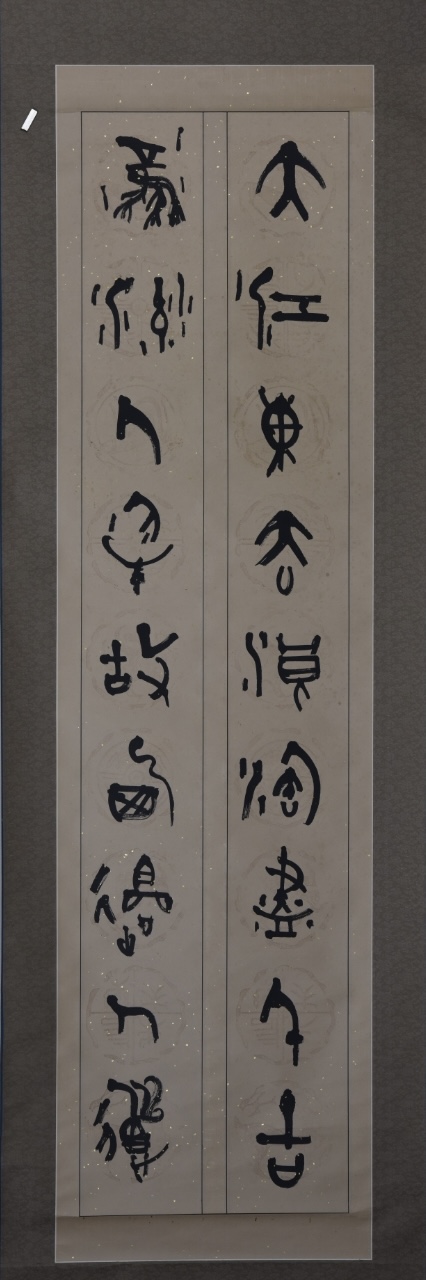 大江東去浪淘盡千古
風流人物故西邊人道